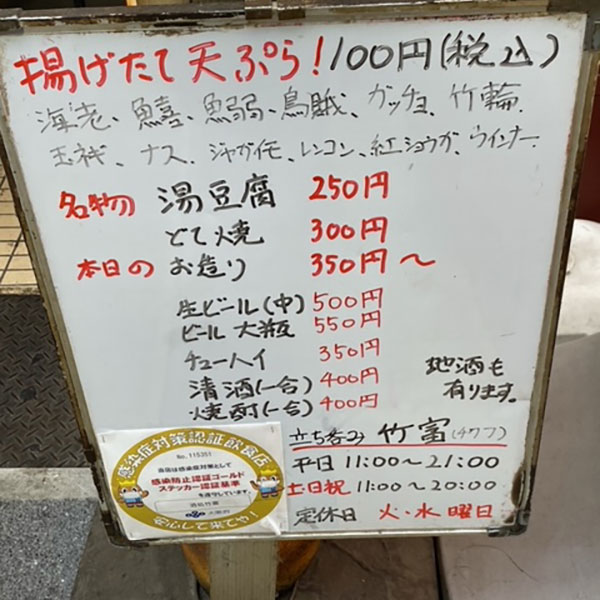 揚げたて天ぷら!100円(税込)
海老、鱚、鰯、烏賊、ガッチョ、竹輪
玉ネギ、ナス、ジャガイモ、レンコン、紅ショウガ、ウインナー
名物 湯豆腐 250円
どて焼 300円
本日の お造り 350円〜
生ビール(中) 500円
ビール大瓶 550円
チューハイ 350円
清酒(一合) 400円
焼酎(一合) 400円
地酒も
有ります。
立ち呑み 竹富
平日 11:00〜21:00
土日祝 11:00〜20:00
定休日 火・水曜日
感染症対策認証飲食店
No. 115351
当店は感染症対策として
感染防止認証ゴールド
ステッカー認証基準
を遵守しています
大阪府
安心して来てや!